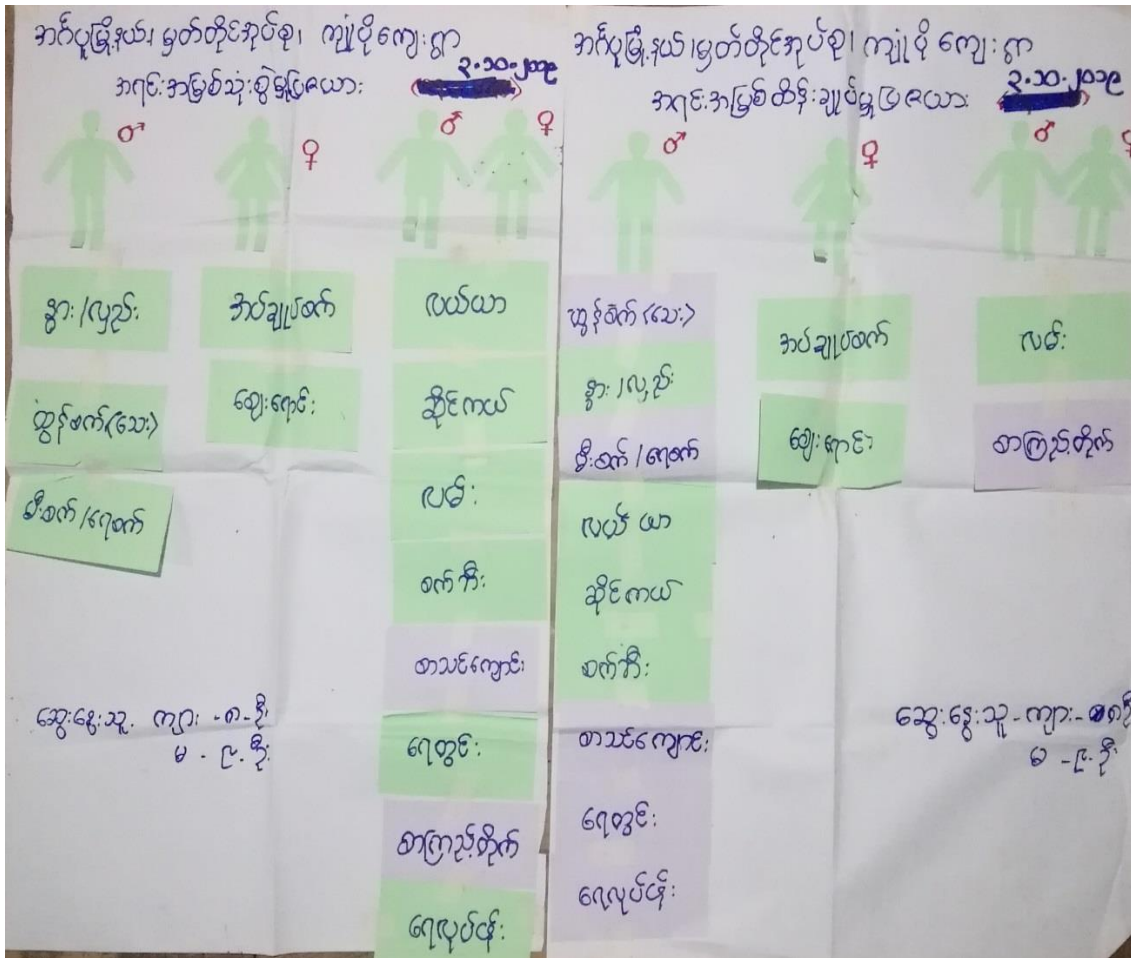 အင်္ဂပူမြို့နယ်၊ မှတ်တိုင်အုပ်စု၊ ကျုံပိုကျေးရွာ
၃-၁၀-၂၀၁၉
အရင်းအမြစ်သုံးစွဲမှုပြဇယား
♂
♀
♂ ♀
နွား/လှည်း
ထွန်စက်(သေး)
မီးစက်/ရေစက်
အပ်ချုပ်စက်
ဈေးရောင်း
လယ်ယာ
ဆိုင်ကယ်
လမ်း
စက်ဘီး
စာသင်ကျောင်း
ရေတွင်း
စာကြည့်တိုက်
ရေလုပ်ငန်း
ဆွေးနွေးသူ- ကျား -၈-ဦး
မ - ၉-ဦး
အင်္ဂပူမြို့နယ်၊ မှတ်တိုင်အုပ်စု၊ ကျုံပိုကျေးရွာ
၃-၁၀-၂၀၁၉
အရင်းအမြစ်ထိန်းချုပ်မှုပြဇယား
♂
♀
♂ ♀
ထွန်စက်(သေး)
နွား/လှည်း
မီးစက်/ရေစက်
လယ်ယာ
ဆိုင်ကယ်
စက်ဘီး
စာသင်ကျောင်း
ရေတွင်း
ရေလုပ်ငန်း
အပ်ချုပ်စက်
ဈေးရောင်း
လမ်း
စာကြည့်တိုက်
ဆွေးနွေးသူ- ကျား- ၈ဦး
မ -၉-ဦး